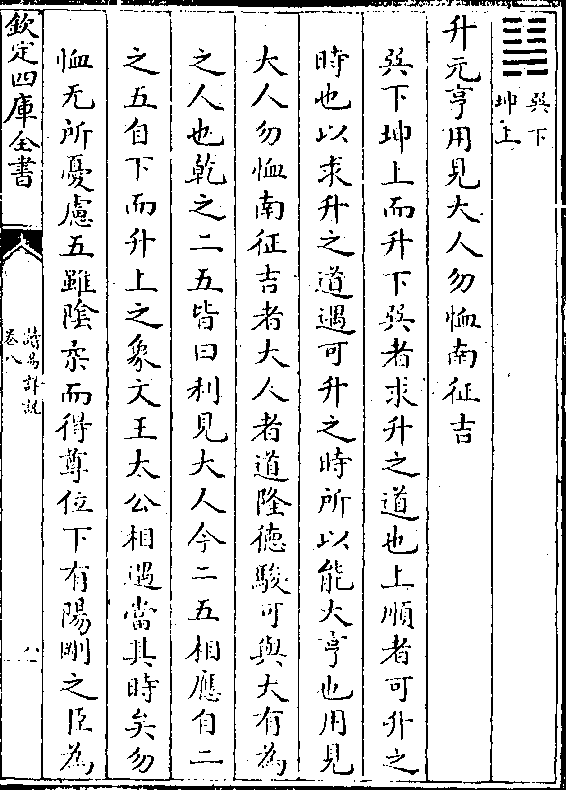 巽下
坤上
升元亨用見大人勿恤南征吉
巽下坤上而升下巽者求升之道也上順者可升之
時也以求升之道遇可升之時所以能大亨也用見
大人勿恤南征吉者大人者道隆德駿可與大有為
之人也乾之二五皆曰利見大人今二五相應自二
之五自下而升上之象文王太公相遇當其時矣勿
恤无所憂慮五雖陰柔而得尊位下有陽剛之臣為
欽定四庫全書
讀易詳說
卷八